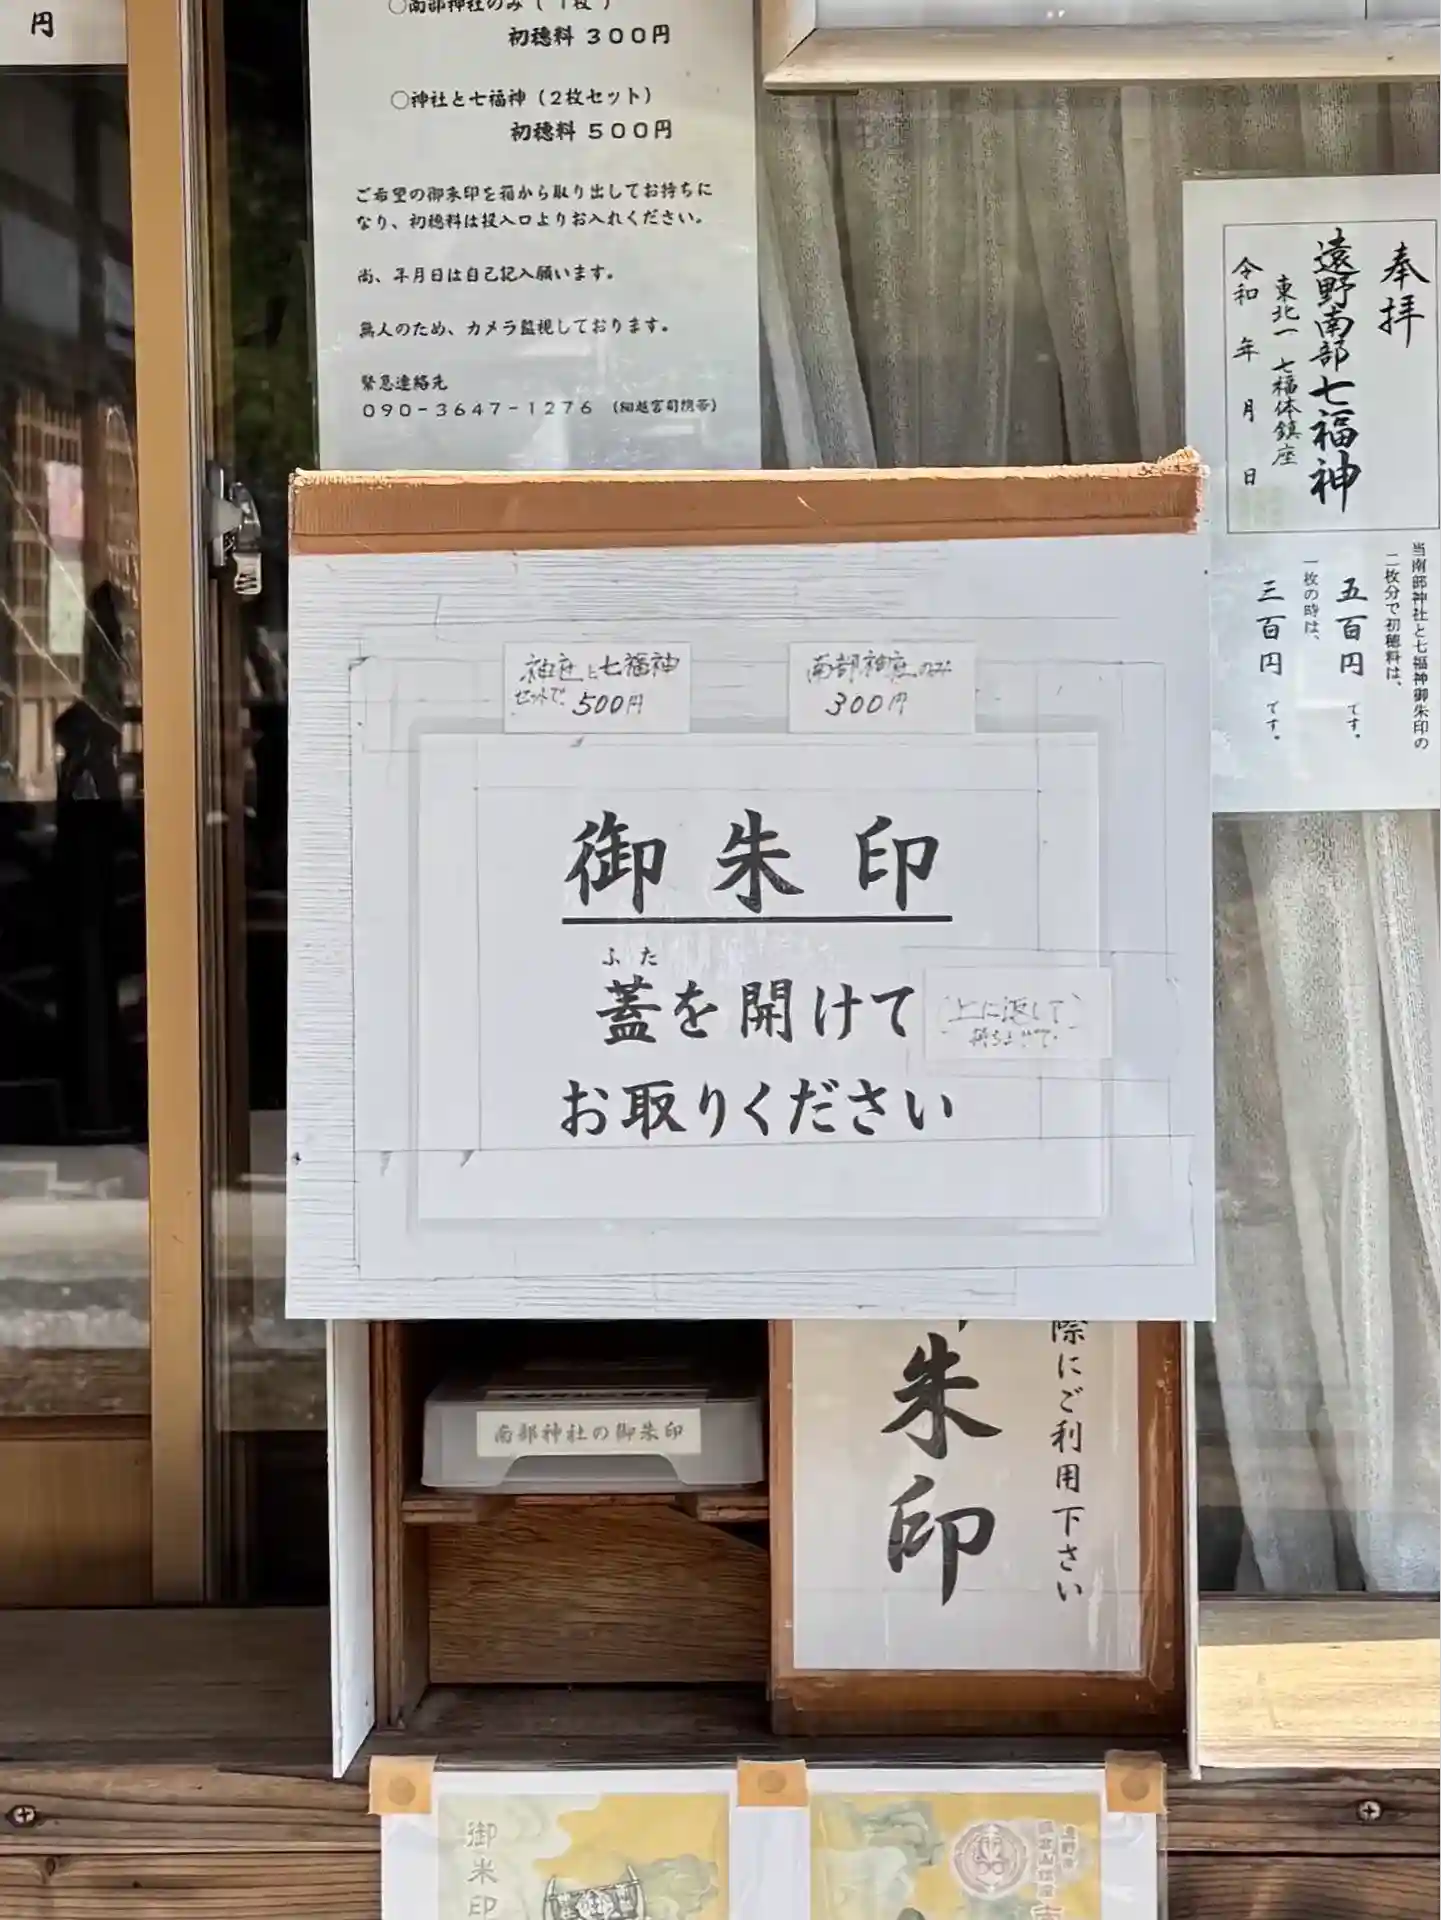 円
○南部神社のみ（１枚）
初穂料 ３００円
○神社と七福神（２枚セット）
初穂料 ５００円
ご希望の御朱印を箱から取り出してお持ちに
なり、初穂料は投入口よりお入れください。
尚、年月日は自己記入願います。
無人のため、カメラ監視しております。
緊急連絡先
０９０－３６４７－１２７６（細越宮司携帯）
奉拝
遠野南部七福神
東北一 七福体鎮座
令和 年 月 日
当南部神社と七福神御朱印の
二枚分で初穂料は、
五百円 です。
一枚の時は、
三百円 です。
神社と七福神
セットで 500円
南部神社のみ
300円
御朱印
ふた
蓋を開けて
(上に返して)
持ち上げて
お取りください
南部神社の御朱印
際にご利用下さい
朱印
御朱印